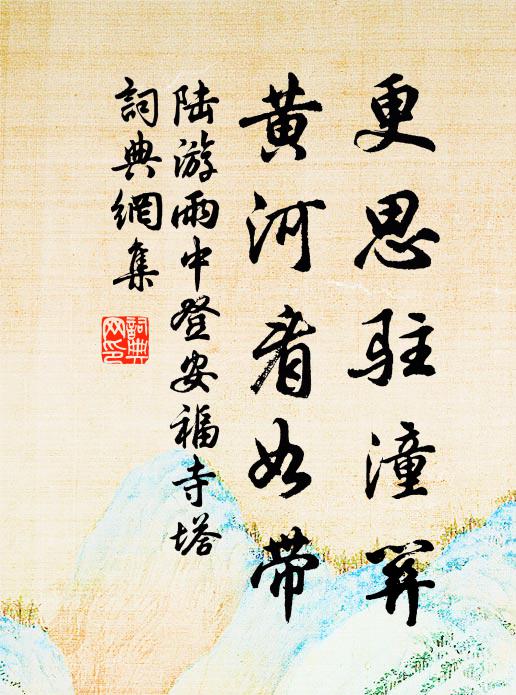 更思駐潼關
黃河看如帶
陆游雨中登安福寺塔
詞典網集
詞典
网印